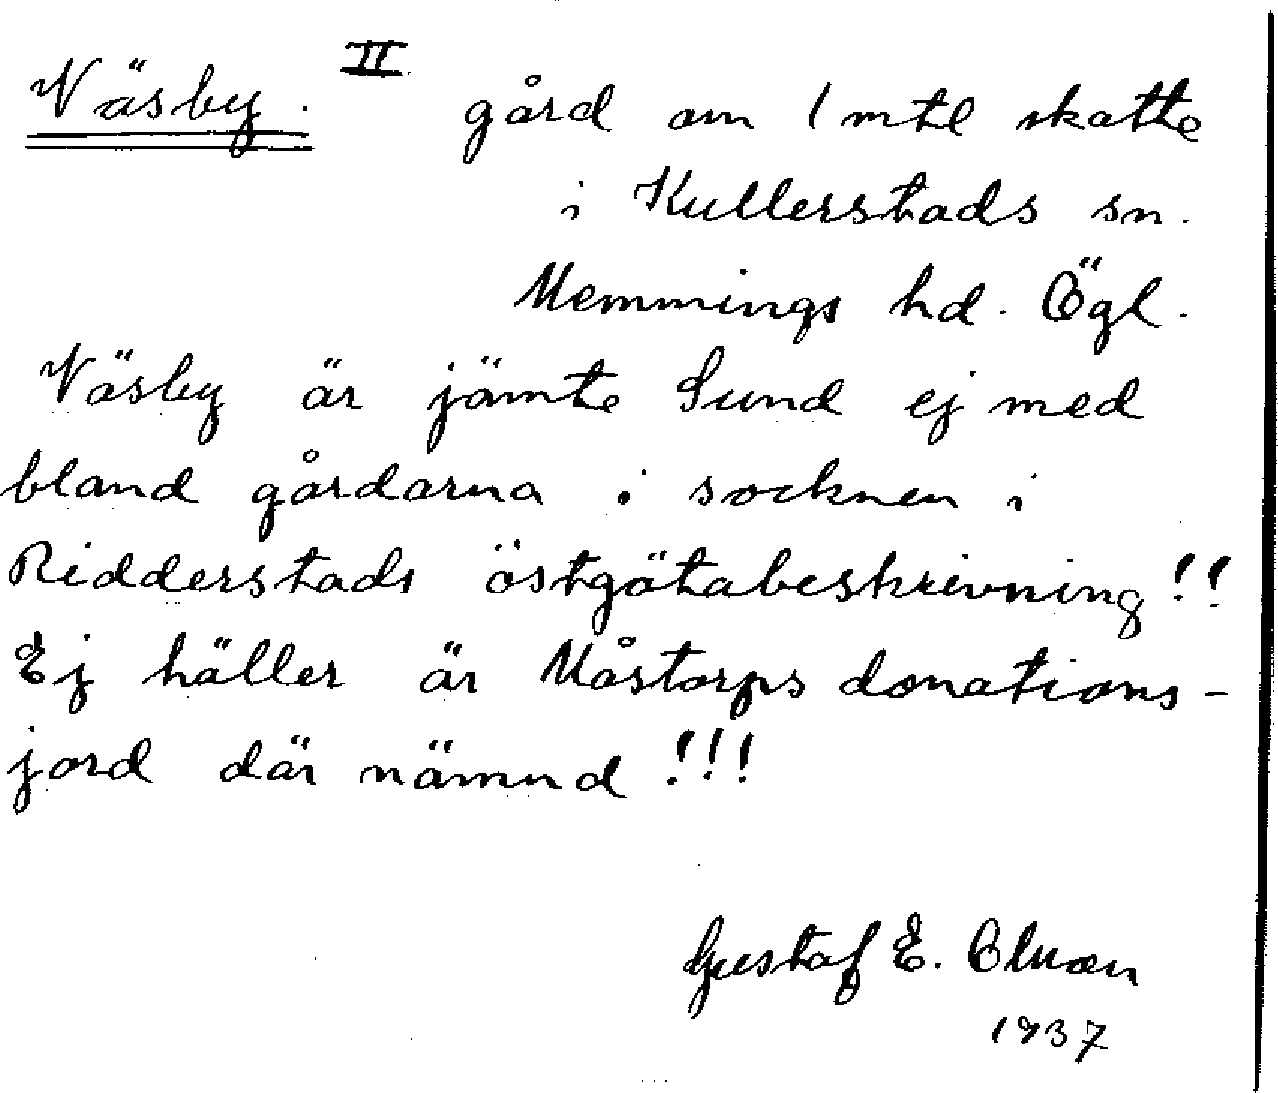 Näsby. II gård om 1 mtl skatte
i Kullerstads sn.
Memmings hd. Ögl.
Näsby är jämte Sund ej med
bland gårdarna i socknen i
Ridderstads östgötabeskrivning!!
Ej häller är Måstorps donations-
jord där nämnd!!!
Gustaf E.
1937